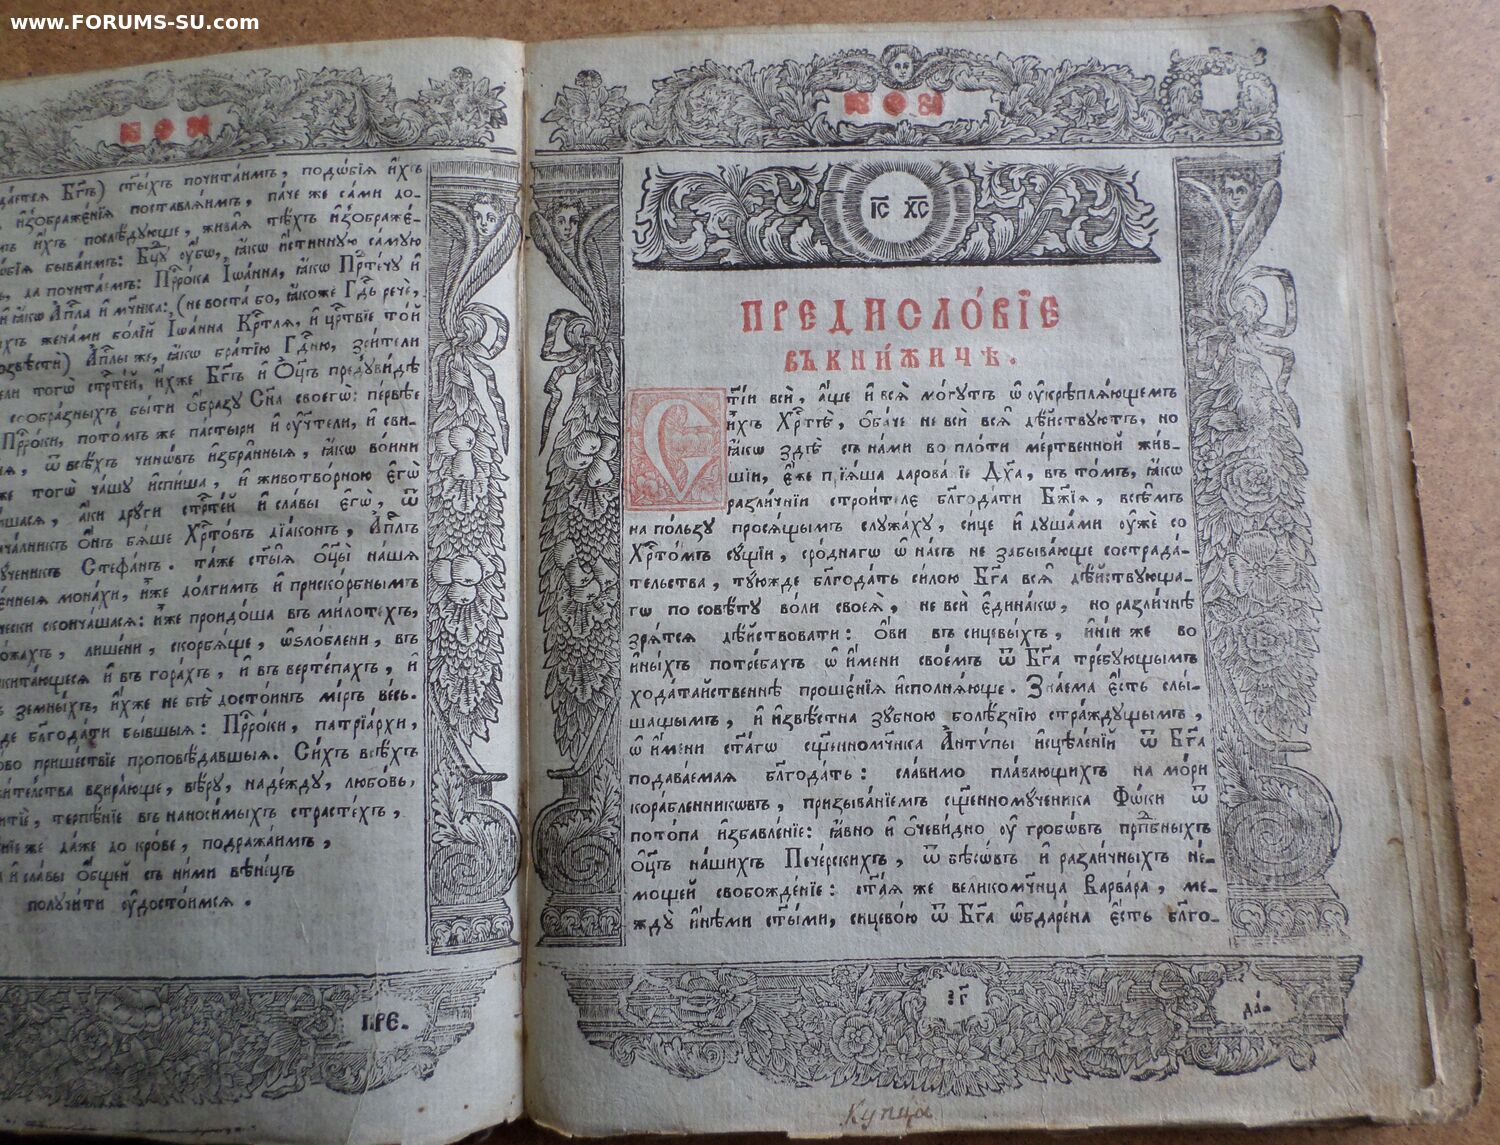 www.FORUMS-SU.com
почита́имъ, подо́бїя и҆́хъ
и҆зображе́нїя поставля́имъ, па́че же са́ми
послѣ́дующе, жива́я тѣ́хъ
быва́имъ: ꙗ҆́кѡ и҆́стинную са́мую
да почита́емъ: Прⷪ҇ро́ка І҆ѡа́нна, ꙗ҆́кѡ Прⷣте́чу и҆
ꙗ҆́кѡ А҆пⷭ҇ла и҆ мч҃нка: (не воста́ бо, ꙗ҆́коже Гдⷭ҇ь речѐ,
жена́ми бо́лїй І҆ѡа́нна Крⷭ҇ти́тля, и҆ црⷭ҇твїе то́й
А҆пⷭ҇лы же, ꙗ҆́кѡ бра́тїю Гдⷭ҇ню, зри́тели
тогѡ̀ и҆́хже Бг҃ъ и҆ Ѻ҆ц҃ъ преду́видѣ
бы́ти ѻ҆́бразу Сн҃а своегѡ̀: пе́рвѣе
Прⷪ҇ро́ки, пото́мъ же па́стыри и҆ ѹ҆чт҃ели, и҆
ѿ всѣ́хъ чинѡ́въ и҆збра́нныя, ꙗ҆́кѡ во́ини
тогѡ̀ ча́шу и҆спи́ша, и҆ животво́рною є҆гѡ̀
а҆́ки дру́ги стрⷭ҇те́й и҆ сла́вы є҆гѡ̀, ѿ
ѻ҆́нъ бѧ́ше Хрⷭ҇то́въ дїа́конъ, А҆пⷭ҇лъ
Стефа́нъ. та́же ст҃ы́я ѻ҆ц҃ы̀ на́шя
мона́хи, и҆̀же до́лгимъ и҆ приско́рбнымъ
сконча́шася: и҆̀же проидо́ша въ ми́лотехъ,
лише́ни, скорбя́ще, ѡ҆ѕло́блени, въ
и҆ въ гора́хъ, и҆ въ верте́пахъ, и҆
земны́хъ, и҆́хже не бѣ̀ досто́инъ мі́ръ ве́сь.
блг҃ода́ти бы́вшыя: Прⷪ҇ро́ки, патрїа́рхи,
прише́ствїе проповѣ́давшыя. Си́хъ всѣ́хъ
взира́юще, вѣ́ру, наде́жду, любо́вь,
терпѣ́нїе въ наноси́мыхъ страсте́хъ,
же да́же до кро́ве, подража́имъ,
и҆ сла́вы ѻ҆́бщей съ ни́ми вѣне́цъ
получи́ти ѹ҆досто́имся.
ПРЕ-
І҆С ХС
ПРЕДИСЛО́ВІЕ
ВЪ КНИ́ЖИЦѢ.
Ст҃і́и всѝ, а҆́ще и҆ вся̀ мо́гутъ ѡ҆ ѹ҆крѣпля́ющемъ
и҆́хъ Хрⷭ҇тѣ̀, ѻ҆ба́че не всѝ вся̀ дѣ́йствуютъ, но
ꙗ҆́кѡ здѣ̀ съ на́ми во пло́ти ме́ртвенной жи́в-
шїи, є҆́же прїя́ша дарова́нїе Дх҃а, въ то́мъ, ꙗ҆́кѡ
разли́чнїи строи́телє блг҃ода́ти Бж҃їя, всѣ́мъ
на по́льзу прося́щымъ служа́ху, си́це и҆ душа́ми ѹ҆жѐ со
Хрⷭ҇то́мъ су́щїи, сро́днагѡ ѡ҆ на́съ не забыва́юще сострада́-
тельства, ту́южде блг҃ода́ть си́лою Бг҃а вся̀ дѣ́йствующа-
гѡ по совѣ́ту во́ли своея̀, не всѝ є҆ди́накѡ, но разли́чнѣ
зря́тся дѣ́йствовати: ѻ҆́ви въ сицевы́хъ, и҆ні́и же во
и҆ны́хъ потре́бахъ ѡ҆ и҆́мени своє́мъ ѿ Бг҃а тре́бующымъ
хода́тайственнѣ проше́нїя и҆сполня́юще. Зна́ема є҆́сть слы́-
шащымъ, и҆ и҆звѣ́стна зу́бною болѣ́знїю стра́ждущымъ,
ѡ҆ и҆́мени ст҃а́гѡ сщ҃енномч҃нка А҆нті́пы и҆сцѣле́нїй ѿ Бг҃а
подава́емая блг҃ода́ть: сла́вимо пла́вающихъ на мо́ри
кора́бленникѡвъ, призыва́нїемъ сщ҃енномч҃еника Фѡ́ки ѿ
пото́па и҆збавле́нїе: ꙗ҆́вно и҆ ѻ҆чеви́дно ѹ҆ гробѡ́въ прпⷣбныхъ
ѻ҆ц҃ъ на́шихъ Пече́рскихъ, ѿ бѣсѡ́въ и҆ разли́чныхъ не́-
мощей свобожде́нїе: ст҃а́я же великомч҃нца Варва́ра, ме-
ждꙋ̀ и҆нѣ́ми ст҃ы́ми, сицево́ю ѿ Бг҃а ѡ҆бдаре́на є҆́сть блг҃о-
да́-
Купца